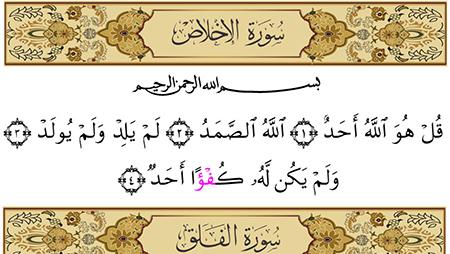 سُورَةُ الإِخْلَاصِ
بسم الله الرحمن الرحيم
قُلْ هُوَ ٱللَّهُ أَحَدٌ ﴿١﴾ ٱللَّهُ ٱلصَّمَدُ ﴿٢﴾ لَمْ يَلِدْ وَلَمْ يُولَدْ ﴿٣﴾
وَلَمْ يَكُن لَّهُۥ كُفْؤًا أَحَدٌۢ ﴿٤﴾
سُورَةُ الفَلَقِ